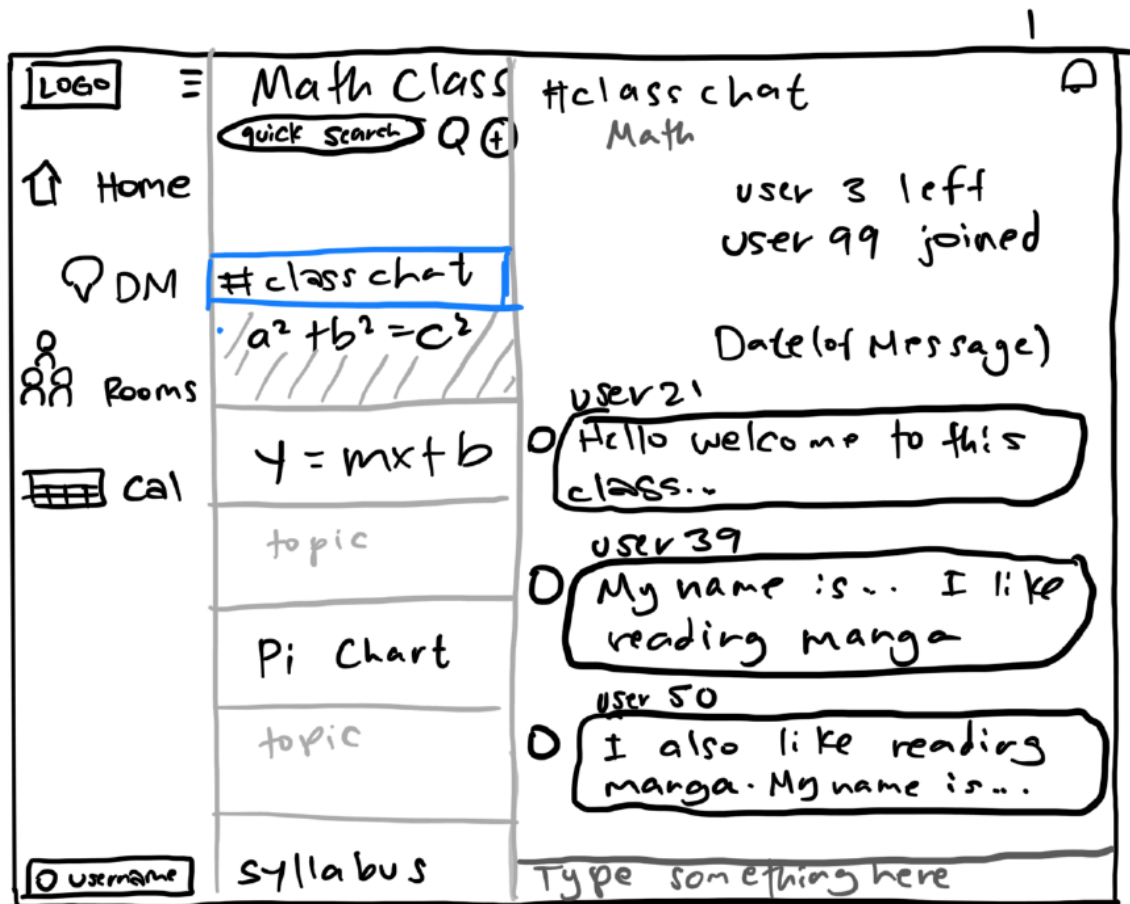 LOGO
Home
DM
Rooms
Cal
username
Math Class
quick search
#class chat
a² + b² = c²
y = mx+b
topic
Pi Chart
topic
syllabus
#class chat
Math
user 3 left
user 99 joined
Date(of Message)
user 21
Hello welcome to this
class..
user 39
My name is... I like
reading manga
user 50
I also like reading
manga. My name is...
Type something here